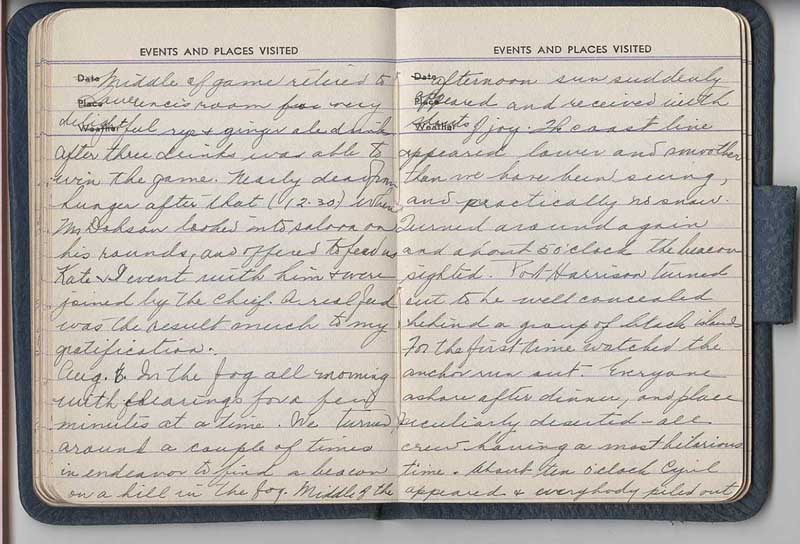 EVENTS AND PLACES VISITED
Date Middle of game retired to
Place Lawrence's room for very
Weather delightful rye & ginger ale drink
After three drinks was able to
win the game. Nearly dead from
hunger after that (12.30) when
Mr Dodson looked into saloon on
his rounds, and offered to feed us
Kate & I went with him & were
joined by the Chief. A real feed
was the result much to my
gratification.
Aug. 8. In the fog all morning
with clearings for a few
minutes at a time. We turned
around a couple of times
in endeavor to find a beacon
on a hill in the fog. Middle of the
EVENTS AND PLACES VISITED
Date afternoon sun suddenly
Place appeared and received with
Weather shouts of joy. The coast line
appeared lower and smoother
than we have been seeing,
and practically no snow.
Turned around again
and about 5 o'clock the beacon
sighted. Port Harrison turned
out to be well concealed
behind a group of black islands
For the first time watched the
anchor run out - Everyone
ashore after dinner, and place
peculiarly deserted - all
crew having a most hilarious
time. About ten o'clock Cyril
appeared & everybody piled out